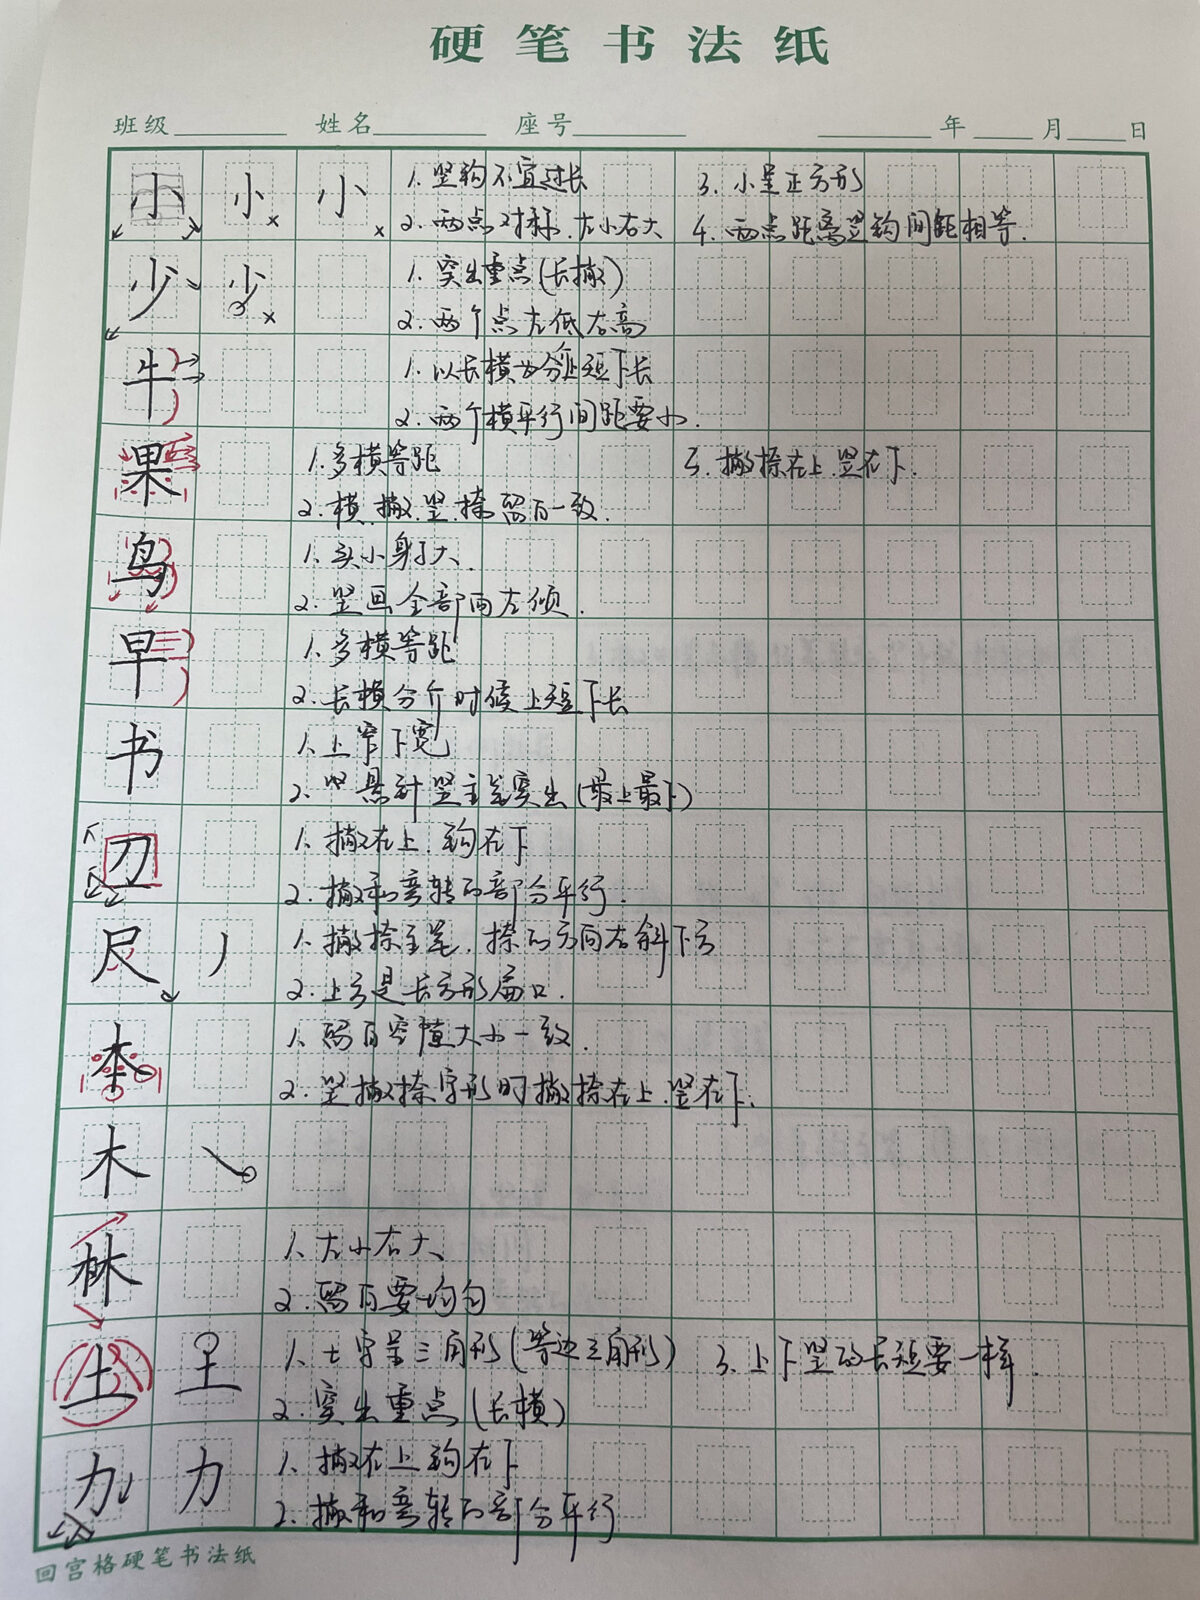 硬笔书法纸
班级 姓名 座号 年 月 日
小 小 小 1. 竖钩不宜过长 3. 小呈正方形
2. 两点对称.左小右大 4. 两点距离竖钩间距相等.
少 少 1. 突出重点(长撇)
2. 两个点左低右高
牛 1. 以长横为分上短下长
2. 两个横平行间距要小.
果 1. 多横等距 3. 撇捺在上.竖在下.
2. 横.撇.竖.捺留白一致.
鸟 1. 头小身子大.
2. 竖画全部向左倾.
早 1. 多横等距
2. 长横分介时候上短下长
书 1. 上窄下宽
2. 竖悬针竖主笔突出(最上最下)
刀 1. 撇在上.钩在下
2. 撇和弯转的部分平行.
尺 丿 1. 撇捺主笔.捺的方向右斜下方
2. 上方是长方形扁口.
本 1. 留白空隙大小一致.
2. 竖撇捺字形时撇捺在上.竖在下.
木 ㇏
林 1. 左小右大、
2. 留白要均匀
土 土 1. 土字呈三角形(等边三角形) 3. 上下竖的长短要一样.
2. 突出重点(长横)
力 力 1. 撇在上钩在下
2. 撇和弯转的部分平行
回宫格硬笔书法纸